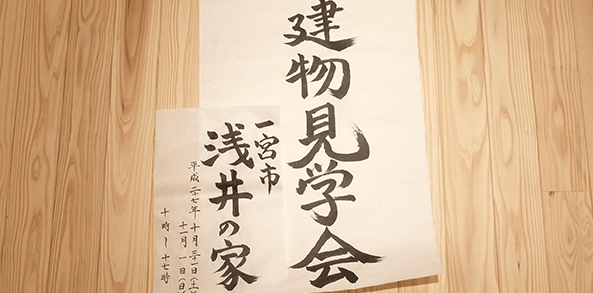 建物見学会
一宮市
浅井の家
平成二七年 十月 三一日(土
十一月 一日(日
十時~十七時